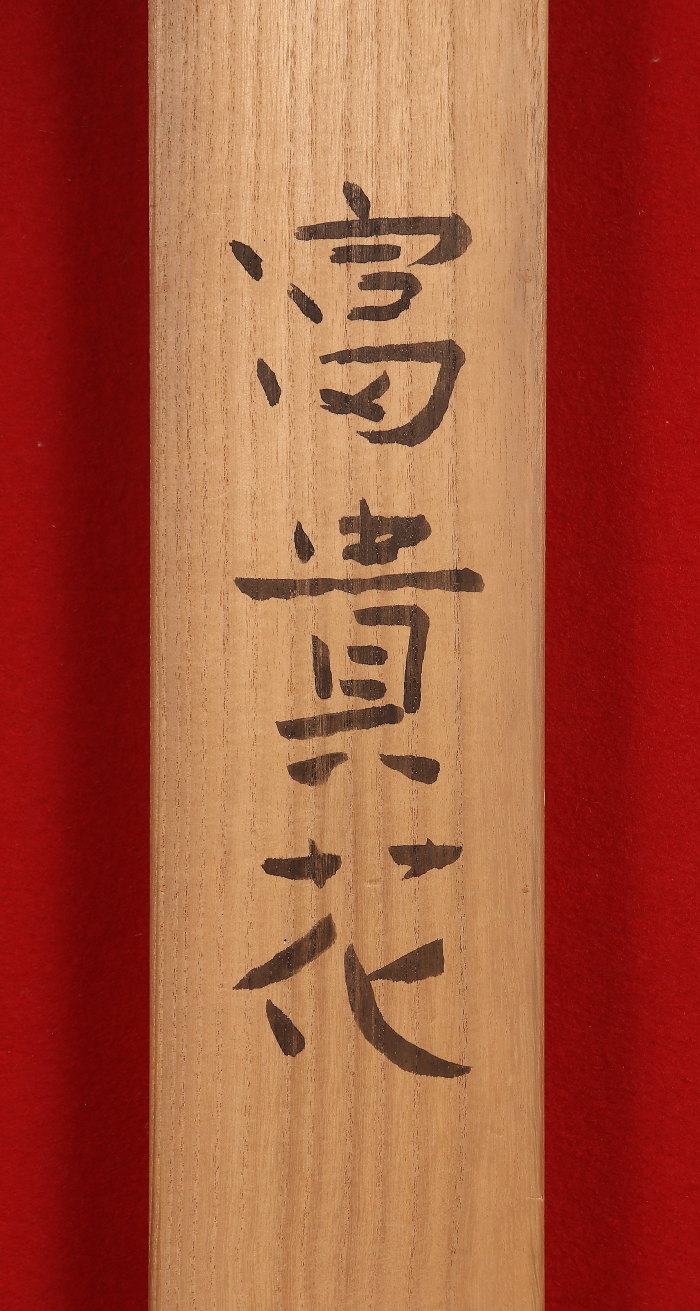 富貴花